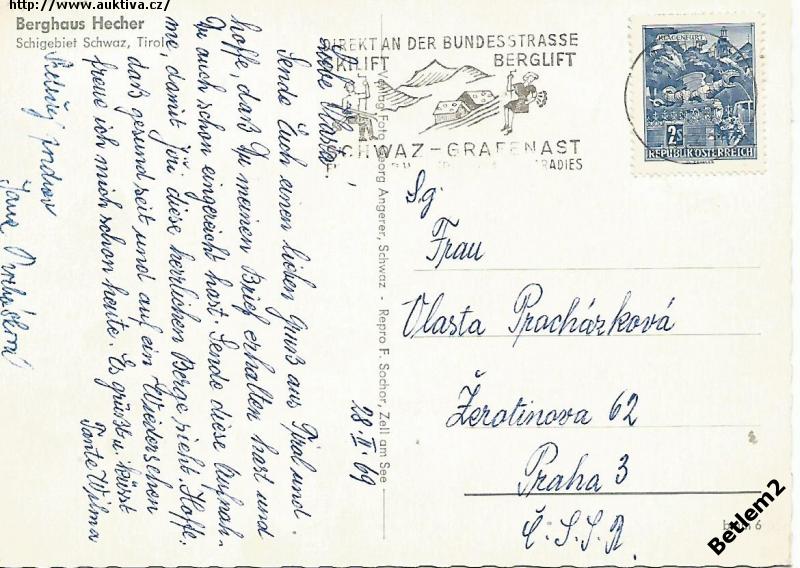 http://www.auktiva.cz/
Berghaus Hecher
Schigebiet Schwaz, Tirol
DIREKT AN DER BUNDESSTRASSE
SKILIFT BERGLIFT
SCHWAZ-GRAFENAST
PARADIES
KLAGENFURT
2s
REPUBLIK ÖSTERREICH
Verlag Foto Georg Angerer, Schwaz - Repro F. Sochor, Zell am See
28. II. 69
Liebe Vlasta,
Sende Euch einen lieben Gruß aus Tirol und
hoffe, daß Du meinen Brief erhalten hast und
Du auch schon eingereicht hast. Sende diese Aufnah-
me, damit Ihr diese herrlichen Berge sieht. Hoffe,
daß gesund seit und auf ein Wiedersehen
freue ich mich schon heute. Es grüßt u. küsst
Tante Wilma
Jana
S.g.
Frau
Vlasta Pracházková
Žerotinova 62
Praha 3
Č.S.S.R.
6
Betlem2